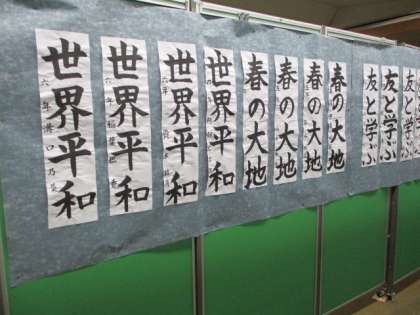 世界平和
世界平和
世界平和
世界平和
春の大地
春の大地
春の大地
春の大地
友と学ぶ
友と学ぶ